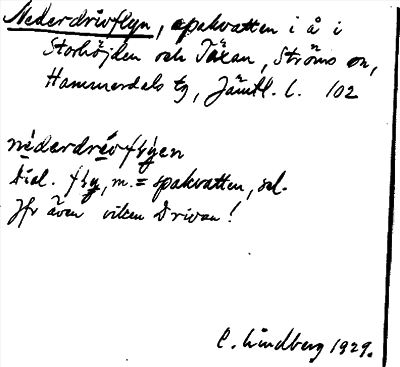 Nederdrivflyn, spakvatten i å i
Storhöjden och Täxan, Ströms sn,
Hammerdals tg, Jämtl. l. 102
nèderdrèvflýen
Dial. fly, m. = spakvatten, sel.
Jfr även viken Drivan!
C. Lindberg 1929.